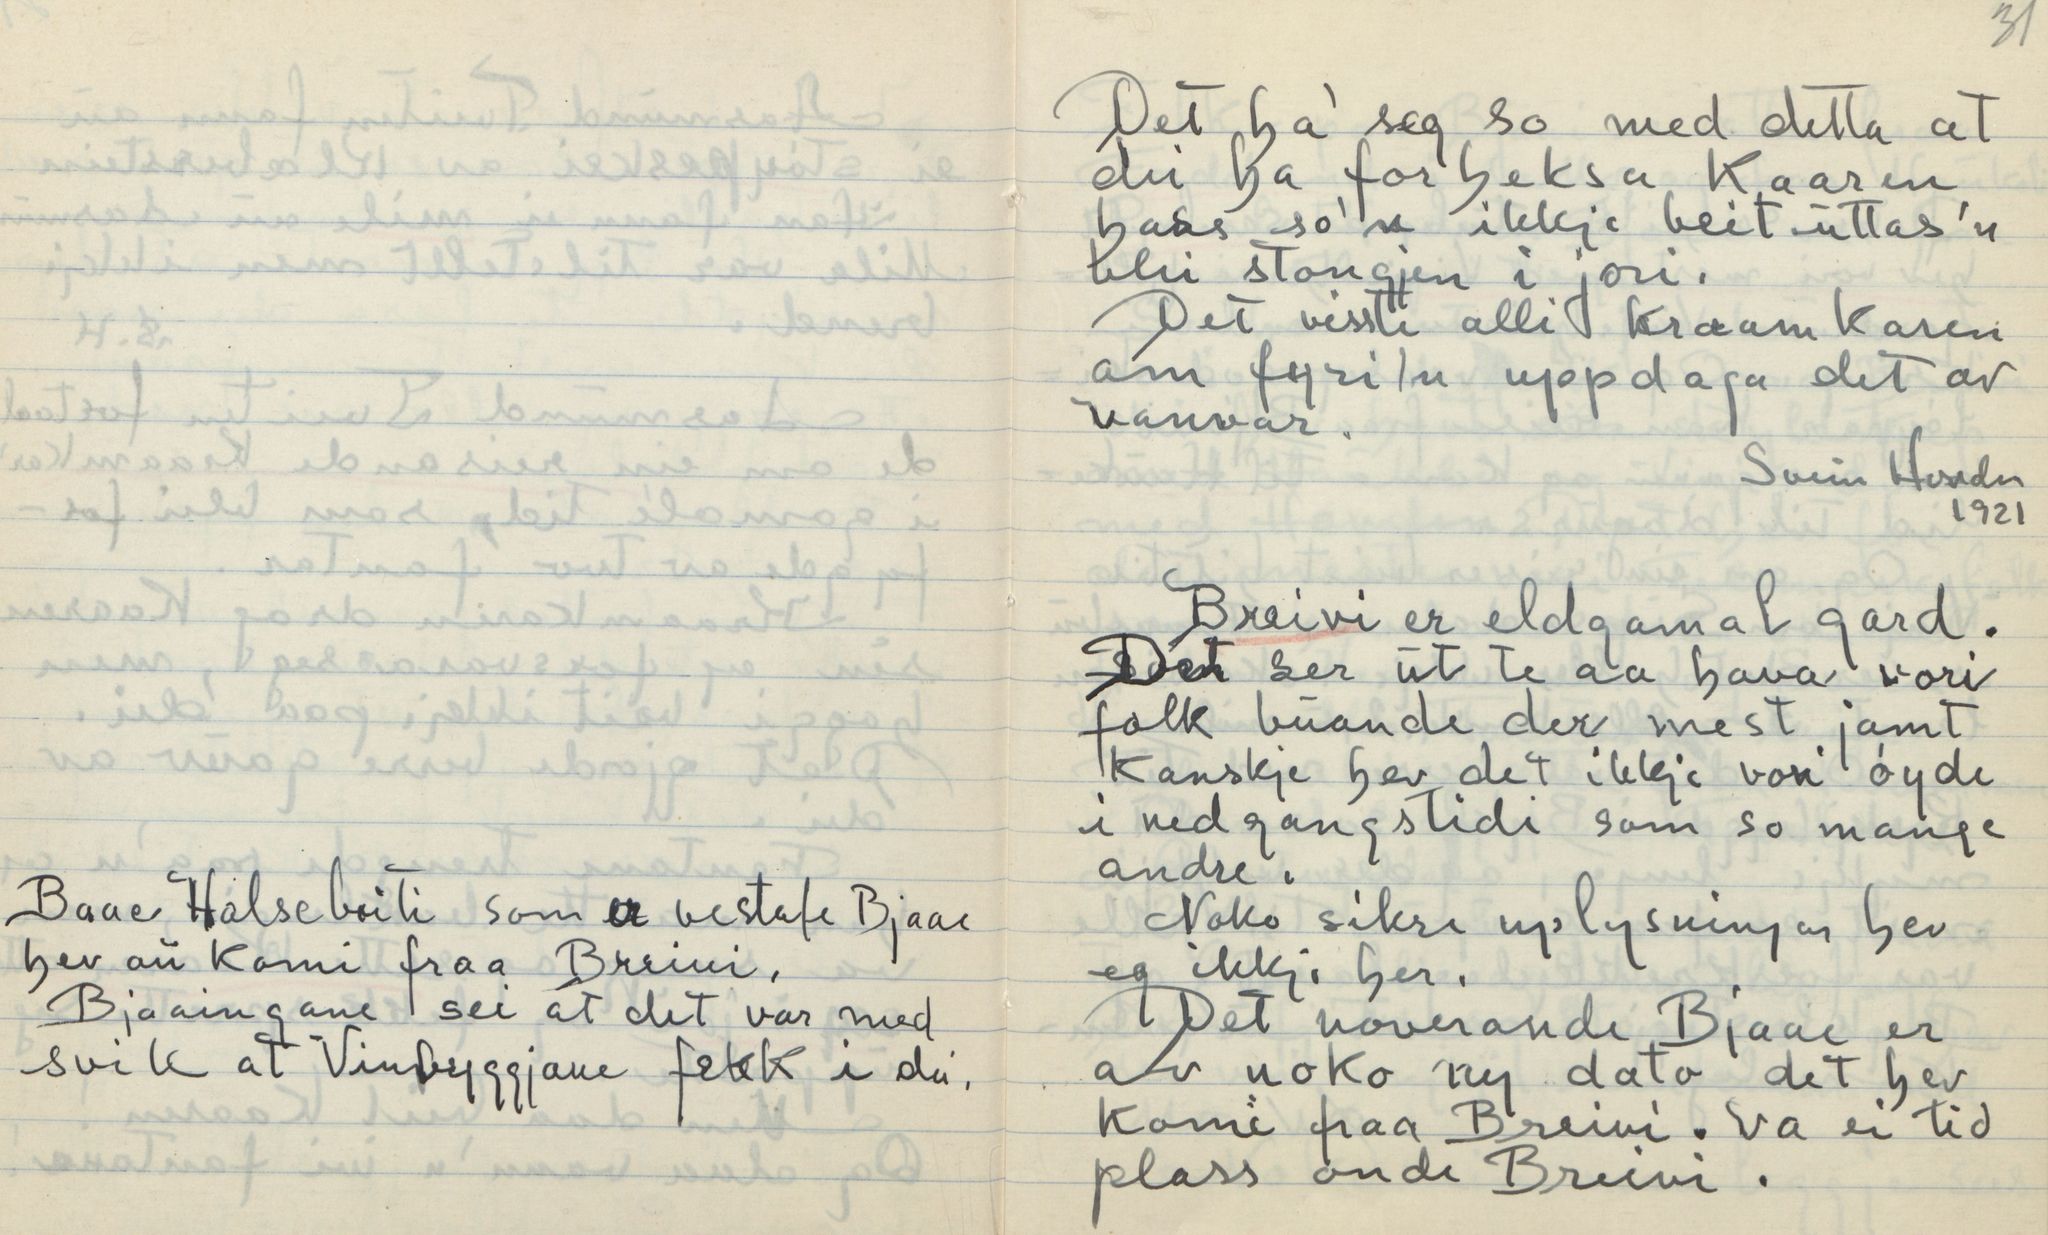 Baae Halsebviti som er vestafe Bjaae
hev au komi fraa Breivi.
Bjaaingane sei at det var med
svik at Vinbyggjane fekk i dei.
31
Det ha' seg so med detta at
dei ha forheksa Kaaren
hass so'n ikkje beit uttas'n
blei stongjen i jori.
Det visste alli kraamkaren
om fyri'n uppdaga det av
vanvar.
Svein Hovden
1921
Breivi er eldgamal gard.
Det ser ut te aa hava vori
folk buande der mest jamt
Kanskje hev det ikkje vori öyde
i nedgangstidi som so mange
andre.
Noko sikre uplysningar hev
eg ikkje her.
Det noverande Bjaae er
av noko ny dato det hev
komi fraa Breivi. Va ei tid
plass onde Breivi.